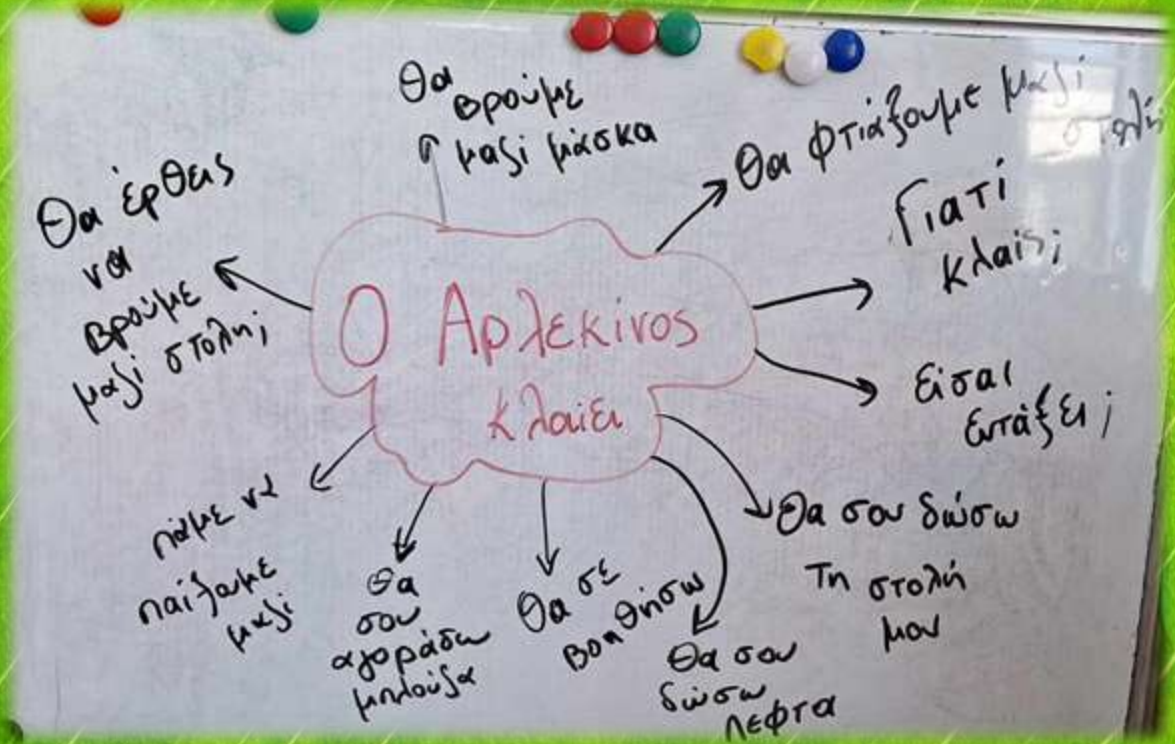 Ο Αρλεκίνος
κλαίει
Θα
βρούμε
μαζί μάσκα
Θα φτιάξουμε μαζί
στολή
Γιατί
κλαίς;
Είσαι
εντάξει;
Θα σου δώσω
τη στολή
μου
Θα σου
δώσω
λεφτα
Θα σε
βοηθήσω
Θα
σου
αγοράσω
μπλούζα
πάμε να
παίξουμε
μαζί
Θα έρθεις
να
βρούμε
μαζί στολή;